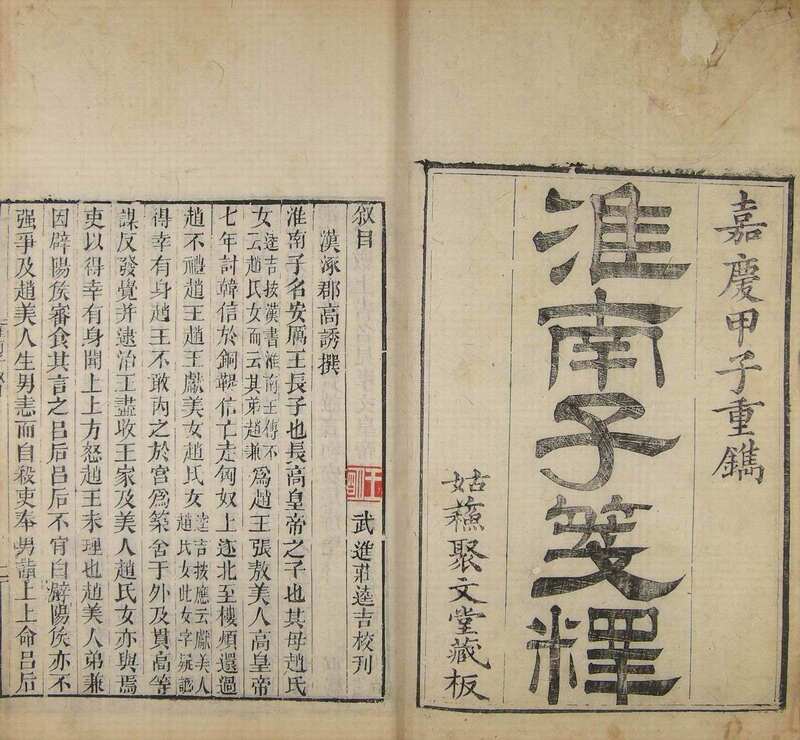 嘉慶甲子重鐫
淮南子箋釋
姑蘓聚文堂藏板
叙目
武進莊逵吉校刊
漢涿郡高誘撰
淮南子名安厲王長子也長高皇帝之子也其母趙氏
女逵吉按漢書淮南王傳不云趙氏女而云其弟趙兼爲趙王張敖美人高皇帝
七年討韓信於銅鞮信亡走匈奴上遂北至樓煩還過
趙不禮趙王趙王獻美女趙氏女逵吉按應云獻美人趙氏女此女字疑譌
得幸有身趙王不敢內之於宮爲築舍于外及貫高等
謀反發覺并逮治王盡收王家及美人趙氏女亦與焉
吏以得幸有身聞上上方怒趙王未理也趙美人弟兼
因辟陽侯審食其言之呂后呂后不肯白辟陽侯亦不
强爭及趙美人生男恚而自殺吏奉男詣上上命呂后